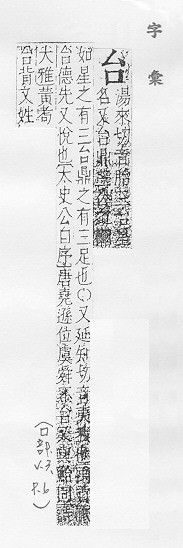 字彙
台
湯來切音胎三台星
名又台鼎
如星之有三台鼎之有三足也○又延知切音
台德先又悅也太史公自序唐堯遜位虞舜不台
大雅黃耇
台背又姓
(口部
V.3.
P.6)